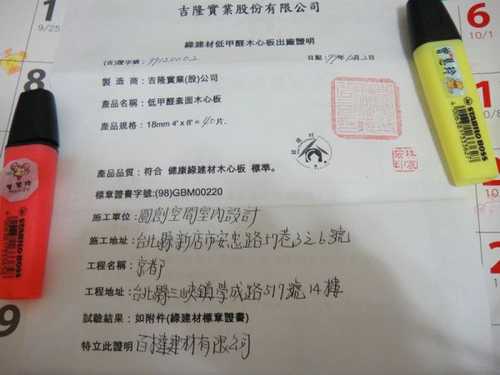 吉隆實業股份有限公司
綠建材低甲醛木心板出廠證明
製造商：吉隆實業(股)公司
產品名稱：低甲醛素面木心板
產品規格：18mm 4'x 8'=40片.
產品品質：符合 健康綠建材木心板 標準。
標章證書字號:(98)GBM00220
施工單位：圓創空間室內設計
施工地址：台北縣新店市安忠路57巷3之6號
工程名稱：京都
工程地址：台北縣三峽鎮學成路517號14樓
試驗結果：如附件(綠建材標章證書)
特立此證明 百達建材有限公司
STABILO BOSS
STABILO BOSS
1
9/25
8
9
6
10/1
1
10/8